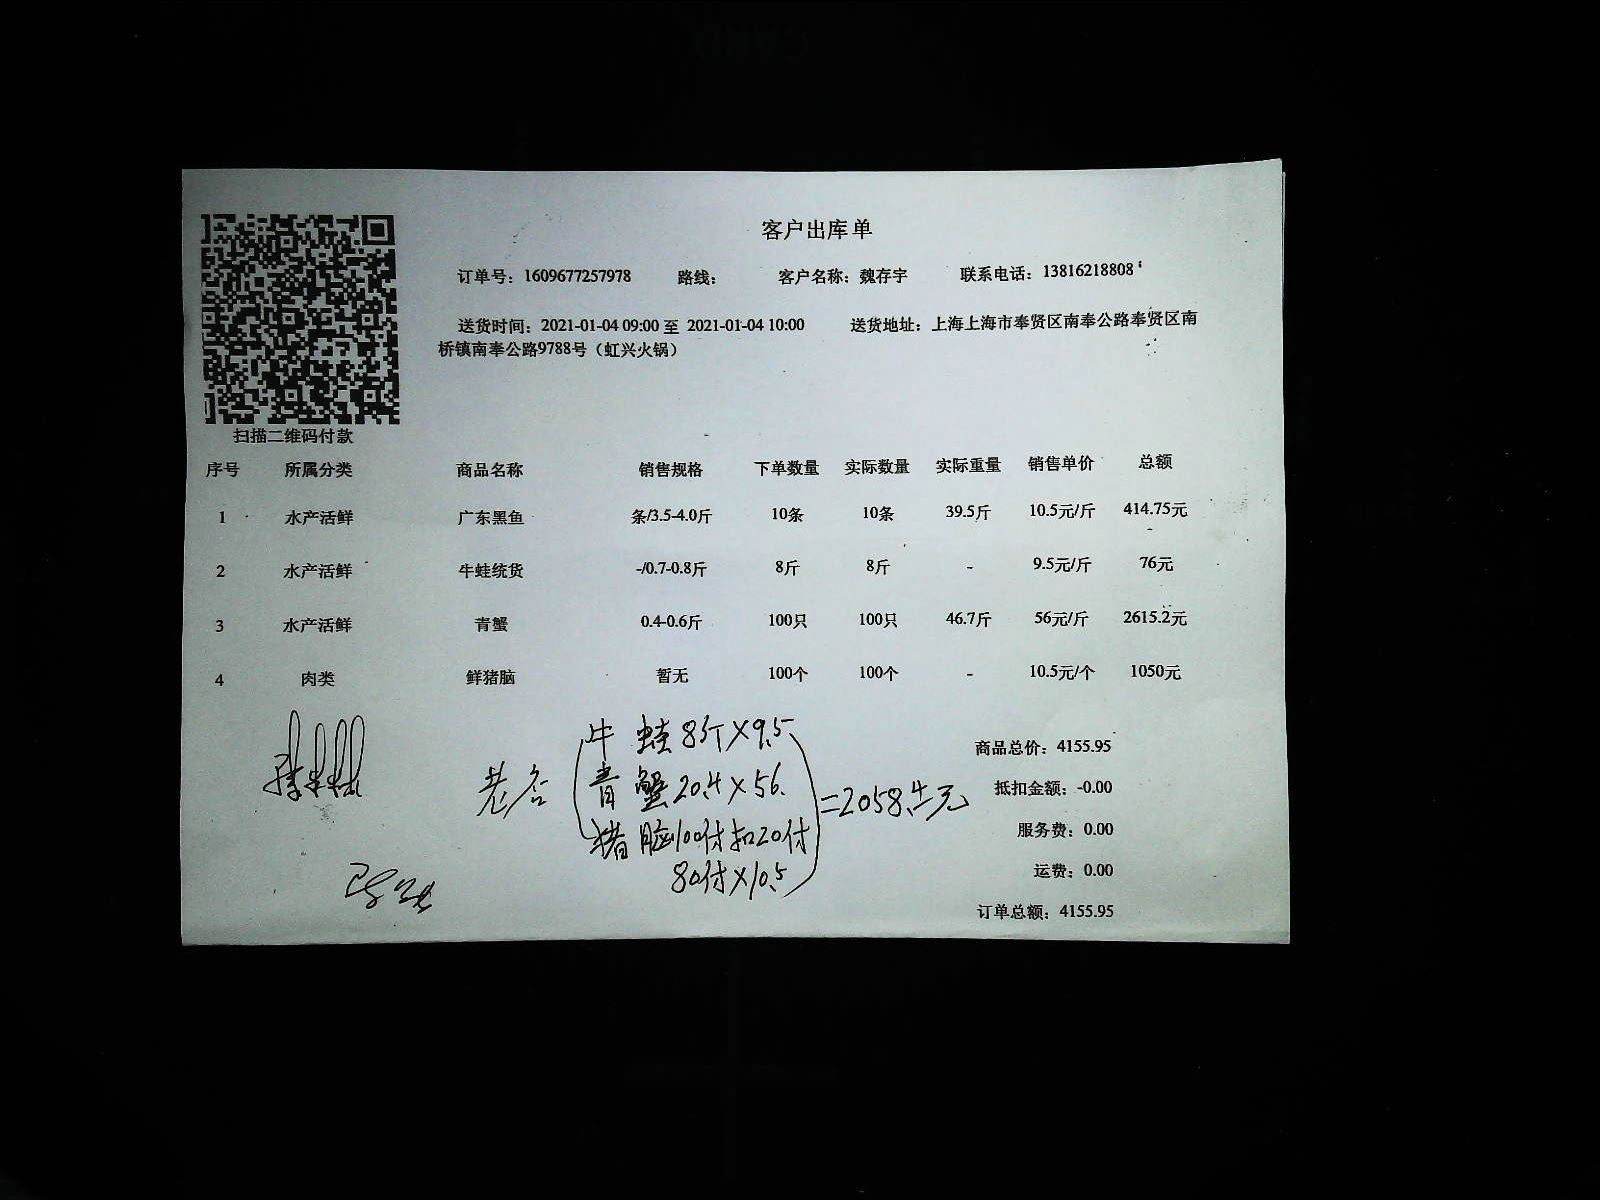 客户出库单
订单号：1609677257978 路线： 客户名称：魏存宇 联系电话：13816218808
送货时间：2021-01-04 09:00 至 2021-01-04 10:00 送货地址：上海上海市奉贤区南奉公路奉贤区南
桥镇南奉公路9788号（虹兴火锅）
扫描二维码付款
序号 所属分类 商品名称 销售规格 下单数量 实际数量 实际重量 销售单价 总额
1 水产活鲜 广东黑鱼 条/3.5-4.0斤 10条 10条 39.5斤 10.5元/斤 414.75元
2 水产活鲜 牛蛙统货 -/0.7-0.8斤 8斤 8斤 - 9.5元/斤 76元
3 水产活鲜 青蟹 0.4-0.6斤 100只 100只 46.7斤 56元/斤 2615.2元
4 肉类 鲜猪脑 暂无 100个 100个 - 10.5元/个 1050元
牛蛙8斤×9.5
青蟹20.4×56.
猪脑100付扣20付
80付×10.5
=2058.4元
商品总价：4155.95
抵扣金额：-0.00
服务费：0.00
运费：0.00
订单总额：4155.95